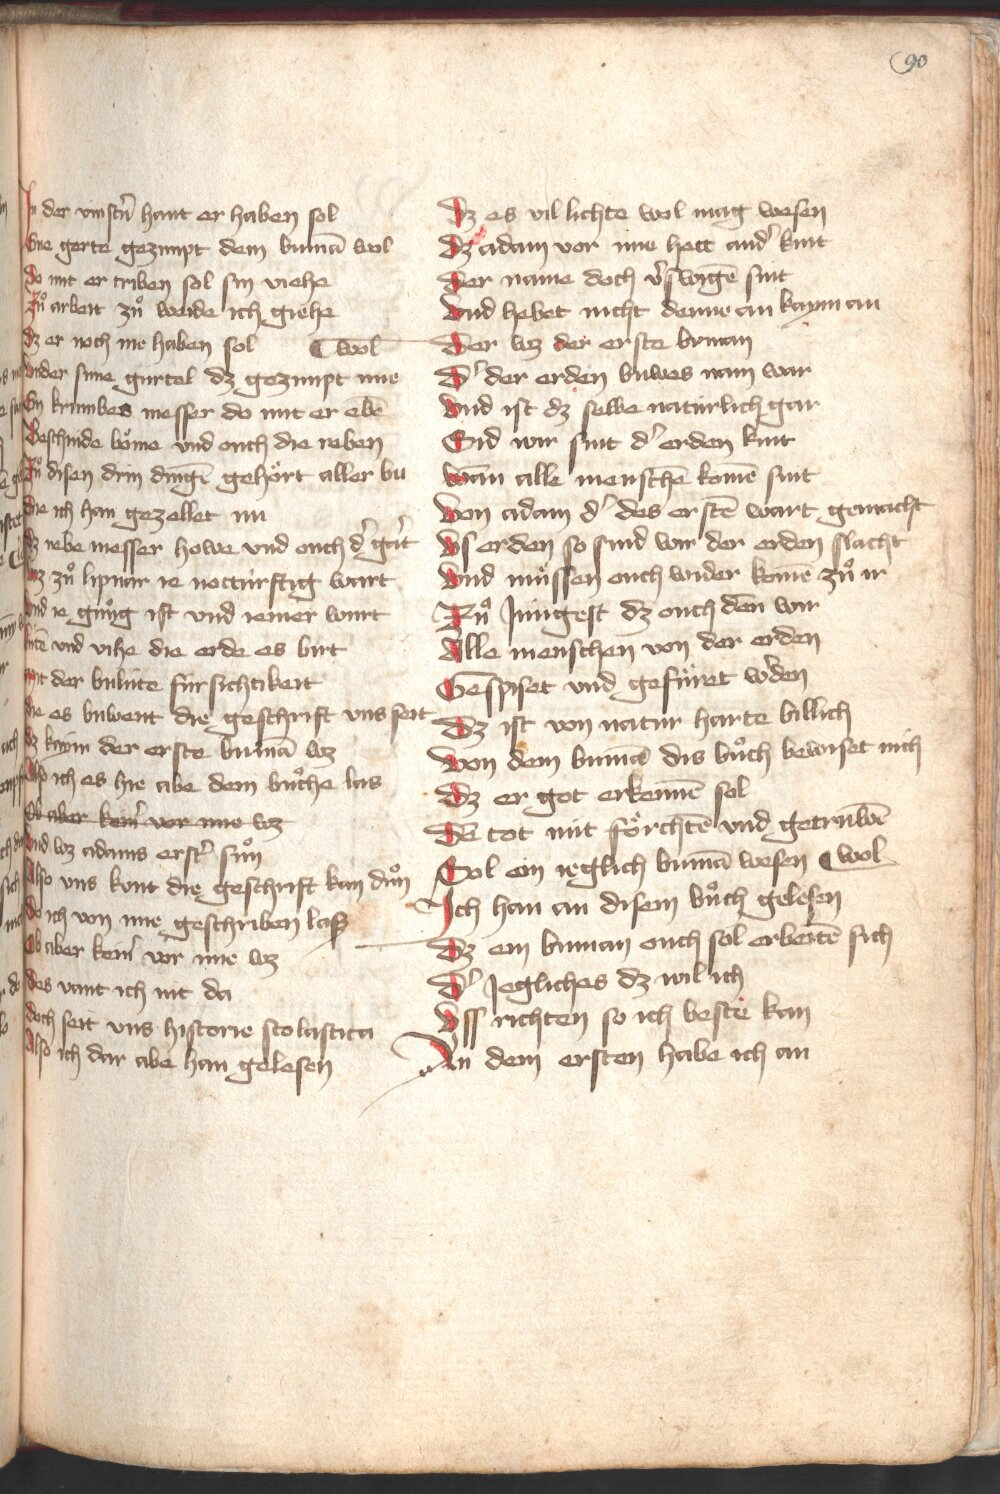 90
In der vinstn̄ hant er haben sol
Eine gerte gezimpt dem bumā wol
Do mit er triben sol sin viehe
Zů arbeit zů weide ich giehe
Dz er noch me haben sol ¶ wol
Under sime gürtel dz gezimpt ime
Ein krumbes messer do mit er ebē
Beschnide böme vnd ouch die reben
Zů disen drin dingē gehört aller bu
Die ich han gezellet nu
Dz rebe messer howe vnd ouch d' gart
Waz zů lipnar ie notturftig wart
Und ie gnůg ist vnd iemer wurt
Lutē vnd vihe die erde es birt
Mit der bulute fürsichtikeit
Die es buwent die geschrift vns seit
Dz kayin der erste bumā wz
Also ich es hie abe dem bůche las
Ob aber kein' vor ime wz
Und wz adams erst' sůn
Also vns kont die geschrift kan důn
Do ich von ime geschriben lasz
Ob aber kein' vor ime wz
Des vant ich nit da
Doch seit vns historie scolastica
Also ich dar abe han gelesen
Dz es vil lichte wol mag wesen
Dz adam vor ime hett and' kint
Der name doch v'swigē sint
Und hebet nicht denne an kayin an
Der wz der erste buman
D' der erden buwes nam war
Und ist dz selbe natürlich gar
Sid wir sint d' erden kint
Wan alle menschē komē sint
Von adam d' des erstē wart gemacht
Us erden so sind wir der erden slacht
Und müssen ouch wider komē zů ir
Zů Jungest dz ouch den wir
Alle menschen von der erden
Gespiset vnd gefüret w'den
Dz ist von natur harte billich
Von dem bumā dis bůch bewiset mich
Dz er got erkennē sol
DE tot mit förchtē vnd getruwē
Sol ein ieglich bumā wesen ¶ wol
Ich han an disem bůch gelesen
Dz ein buman ouch sol erbeitē sich
D' Jegliches dz wil ich
Uss richten so ich beste kan
An dem ersten habe ich an